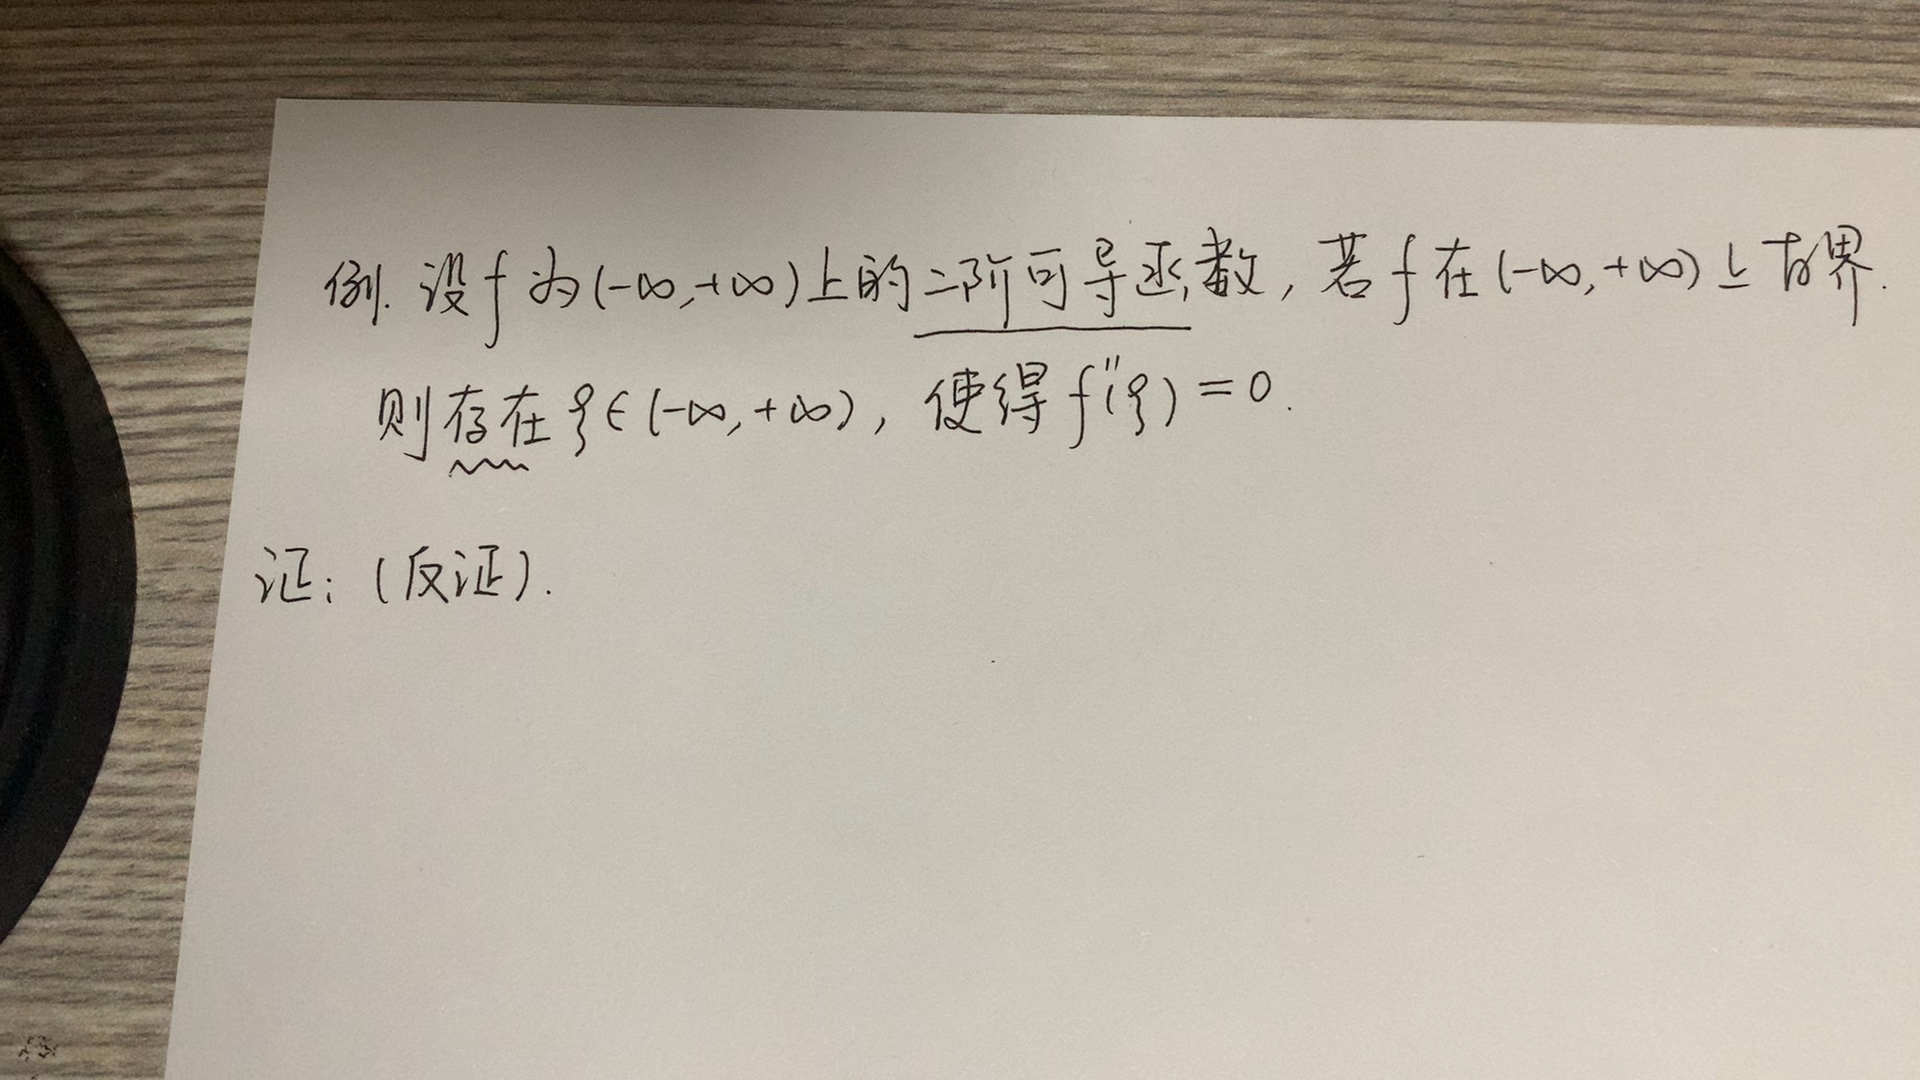 例. 设f为(-∞,+∞)上的二阶可导函数, 若f在(-∞,+∞)上有界.
则存在ξ∈(-∞,+∞), 使得f''(ξ)=0.
证: (反证).